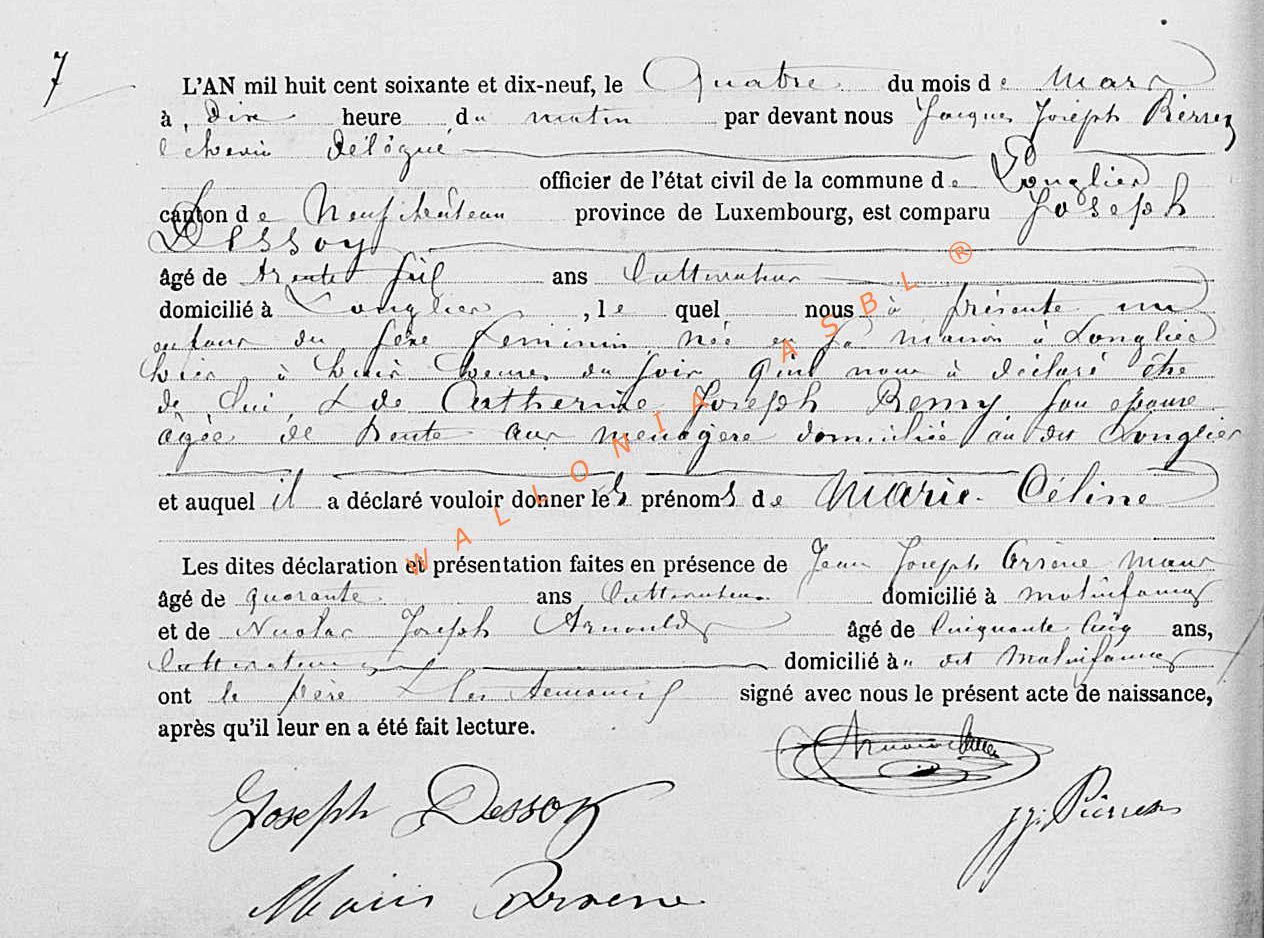 7
L'AN mil huit cent soixante et dix-neuf, le Quatre du mois de Mars
à dix heure du matin par devant nous Jacques Joseph Pierret
Echevin délégué
officier de l'état civil de la commune de Longlier
canton de Neufchâteau province de Luxembourg, est comparu Joseph
Dessoy
âgé de trente ans Cultivateur
domicilié à Longlier, le quel nous à présenté un
enfant du sexe Feminin née en sa maison à Longlier
hier à huit heures du soir qu'il nous à déclaré être
de lui & de Catherine Joseph Remy, son epouse
âgée de trente ans menagère domiciliée au dit Longlier
et auquel il a déclaré vouloir donner les prénoms de Marie-Céline
Les dites déclaration et présentation faites en présence de Jean Joseph Arsène
âgé de quarante ans Cultivateur domicilié à
et de Nicolas Joseph Arnould âgé de Cinquante Cinq ans,
Cultivateur domicilié au dit
ont le père & les temoins signé avec nous le présent acte de naissance,
après qu'il leur en a été fait lecture.
Joseph Dessoy
jj. Pierret
Arsene
WALLONIA ASBL ®